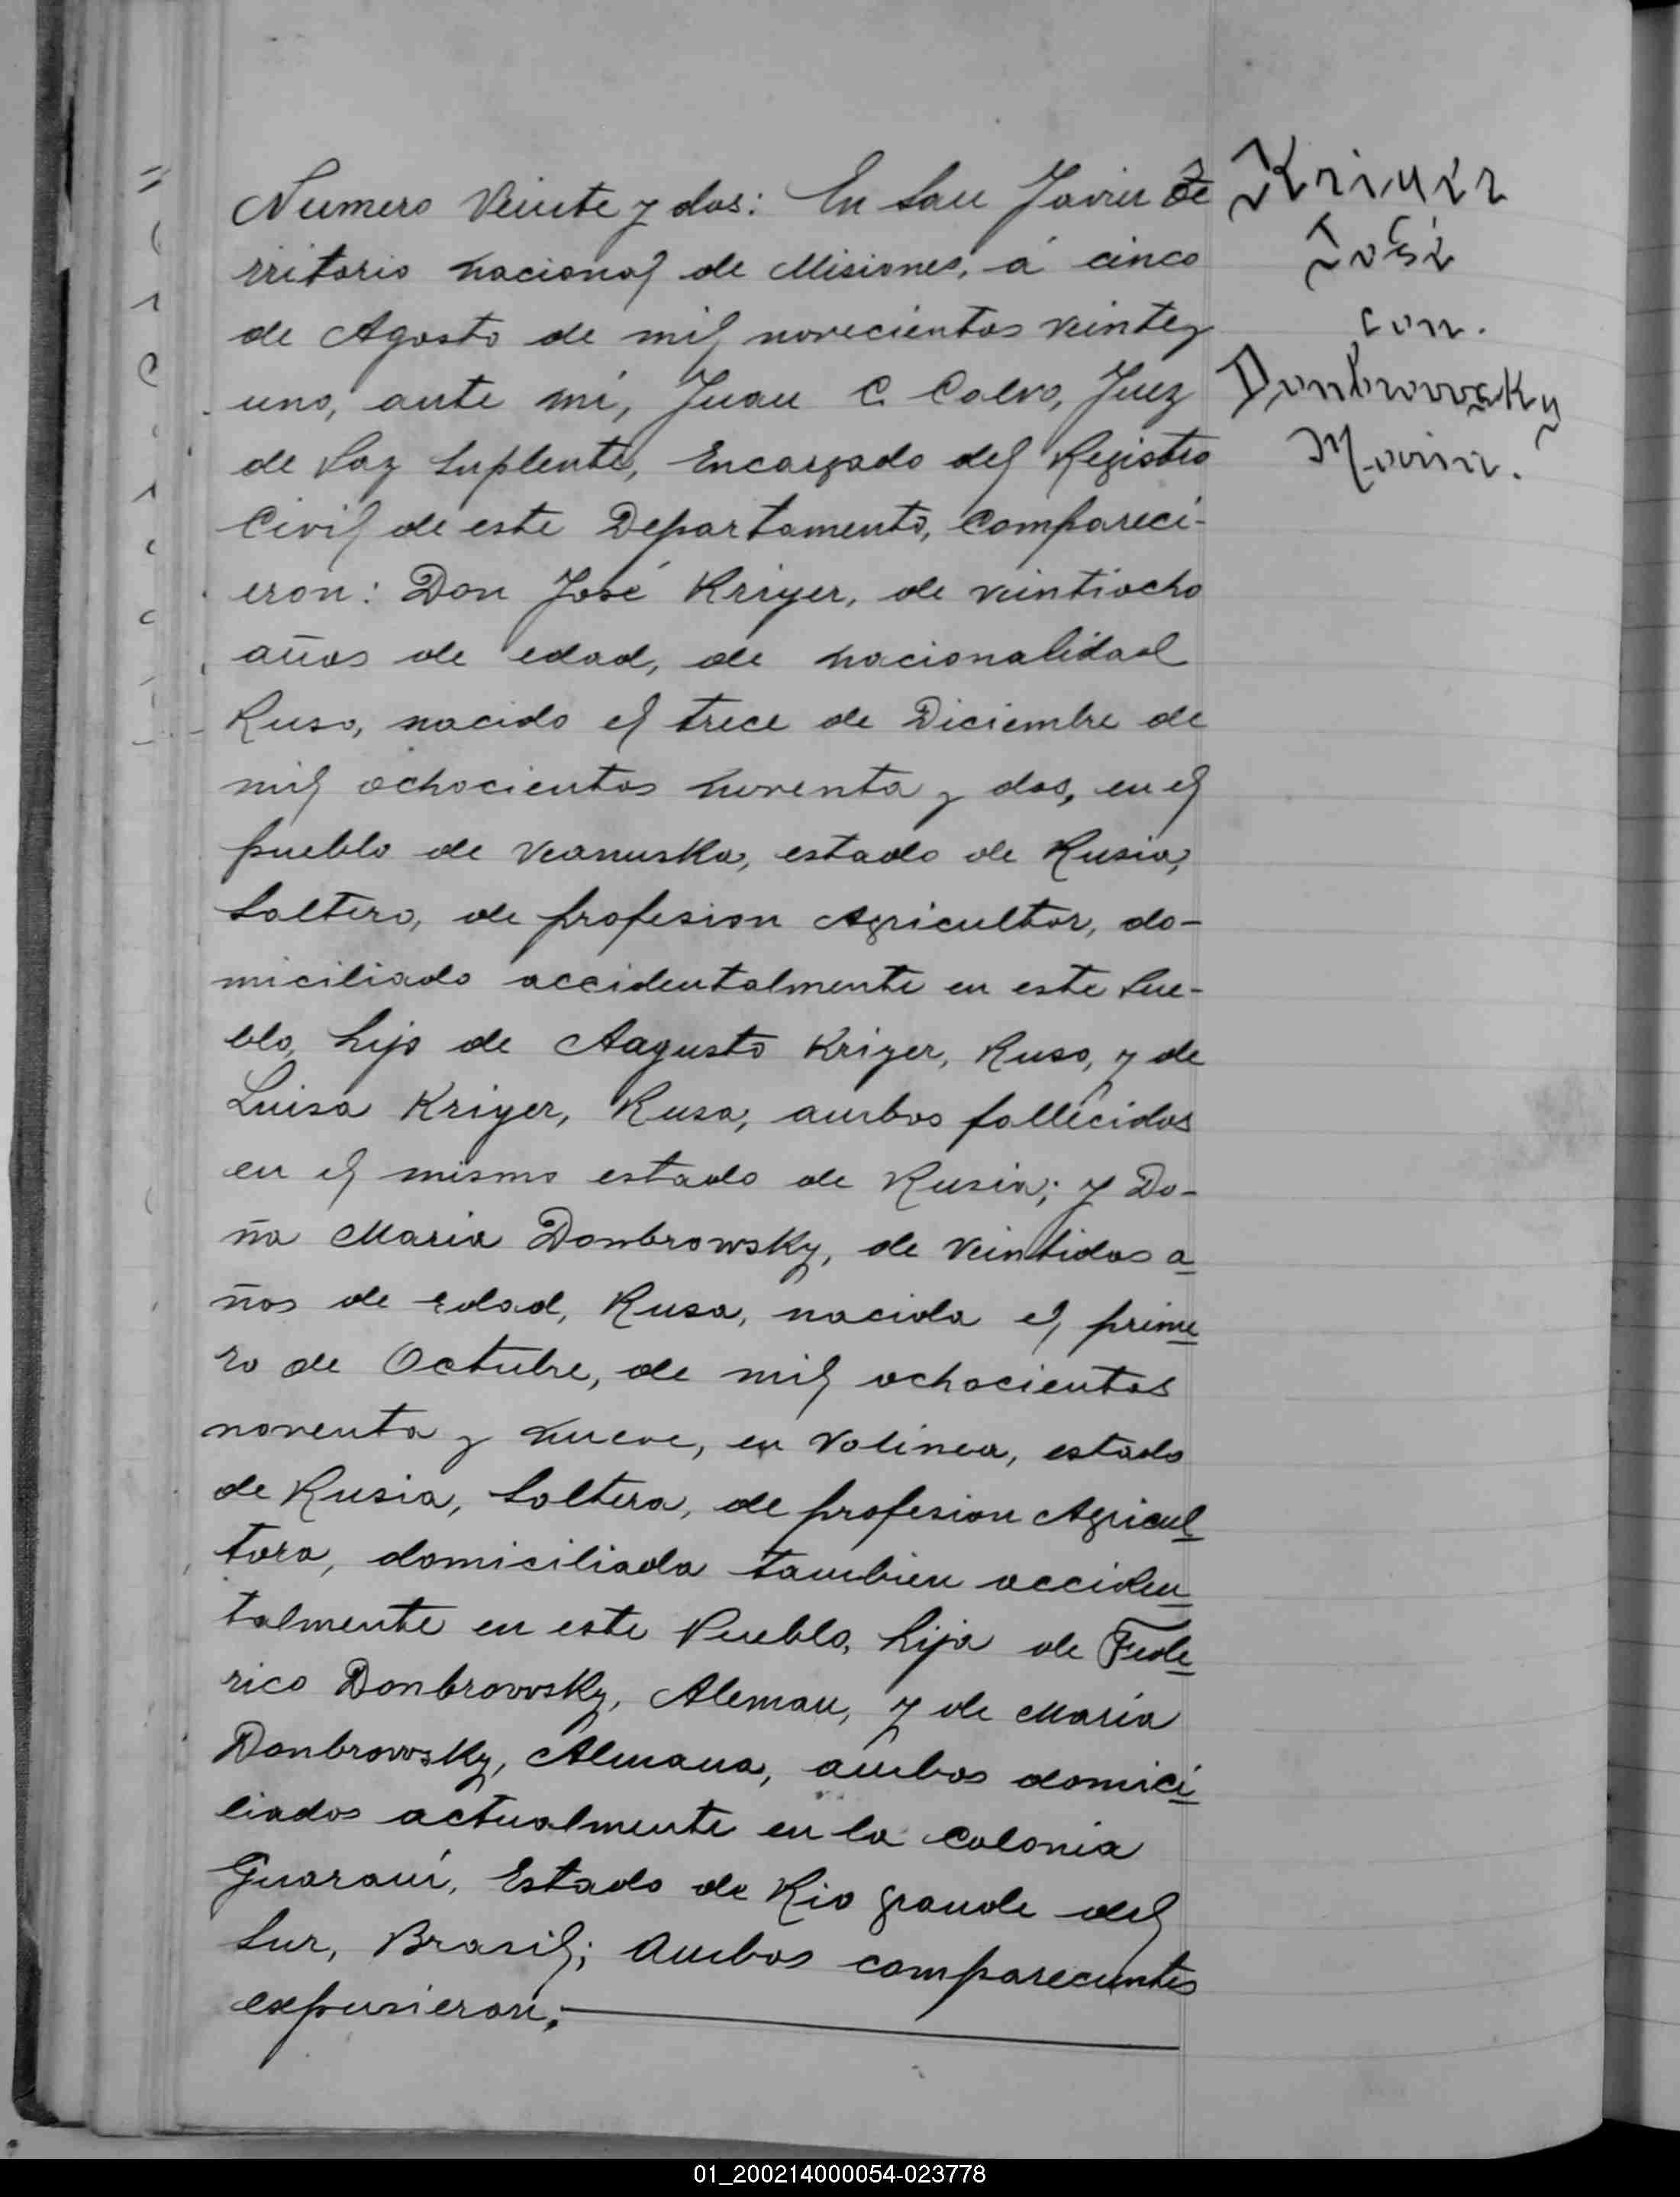 Numero Veinte y dos: En San Javier Te
rritorio nacional de Misiones, á cinco
de Agosto de mil novecientos veinte y
uno, ante mí, Juan C. Calvo, Juez
de Paz Suplente, Encargado del Registro
Civil de este Departamento, Compareci-
eron: Don José Kriger, de veintiocho
años de edad, de nacionalidad
Ruso, nacido el trece de Diciembre de
mil ochocientos noventa y dos, en el
pueblo de Veanuska, estado de Rusia,
Soltero, de profesion Agricultor, do-
miciliado accidentalmente en este Pue-
blo, hijo de Aagusto Kriger, Ruso, y de
Luisa Kriger, Rusa, ambos fallecidos
en el mismo estado de Rusia; y Do-
ña Maria Dombrowsky, de veintidos a
ños de edad, Rusa, nacida el prime
ro de Octubre, de mil ochocientos
noventa y nueve, en Volinea, estado
de Rusia, Soltera, de profesion Agricul
tora, domiciliada tambien acciden
talmente en este Pueblo, hija de Fede
rico Donbrowsky, Aleman, y de Maria
Donbrowsky, Almana, ambos domici
liados actualmente en la Colonia
Guaraní, Estado de Rio grande del
Sur, Brasil; Ambos comparecientes
expusieron;
Kriger
José
con.
Donbrowsky
Maria.
01_200214000054-023778